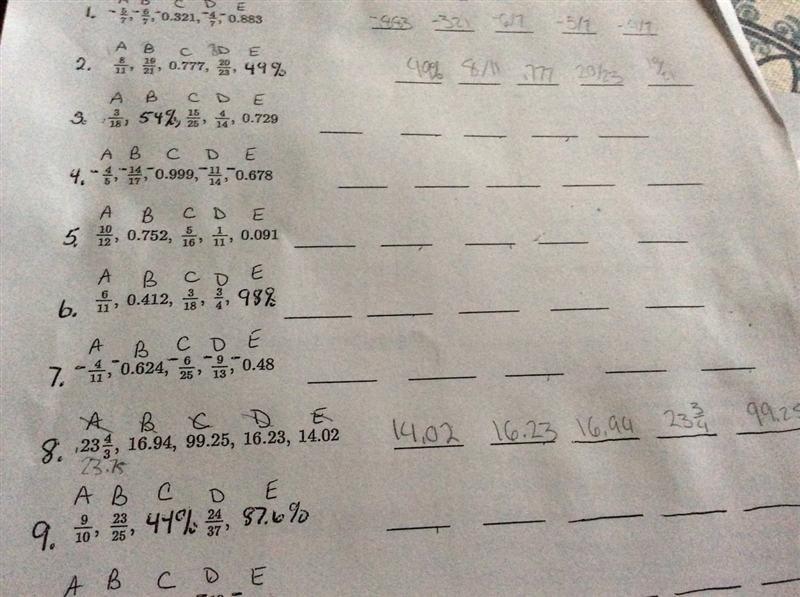 A B C D E
1. -5/7, -6/7, -0.321, -4/7, -0.883 -.883 -.321 -6/7 -5/7 -4/7
A B C D E
2. 8/11, 19/21, 0.777, 20/23, 49% 49% 8/11 .777 20/23
A B C D E
3. 3/18, 54%, 15/25, 4/14, 0.729
A B C D E
4. -4/5, -14/17, -0.999, -11/14, -0.678
A B C D E
5. 10/12, 0.752, 5/16, 1/11, 0.091
A B C D E
6. 6/11, 0.412, 3/18, 3/4, 98%
A B C D E
7. -4/11, -0.624, -6/25, -9/13, -0.48
A B C D E
8. 23 4/3, 16.94, 99.25, 16.23, 14.02 14.02 16.23 16.94 23 3/4 99.25
23.75
A B C D E
9. 9/10, 23/25, 44%, 24/37, 87.6%
A B C D E